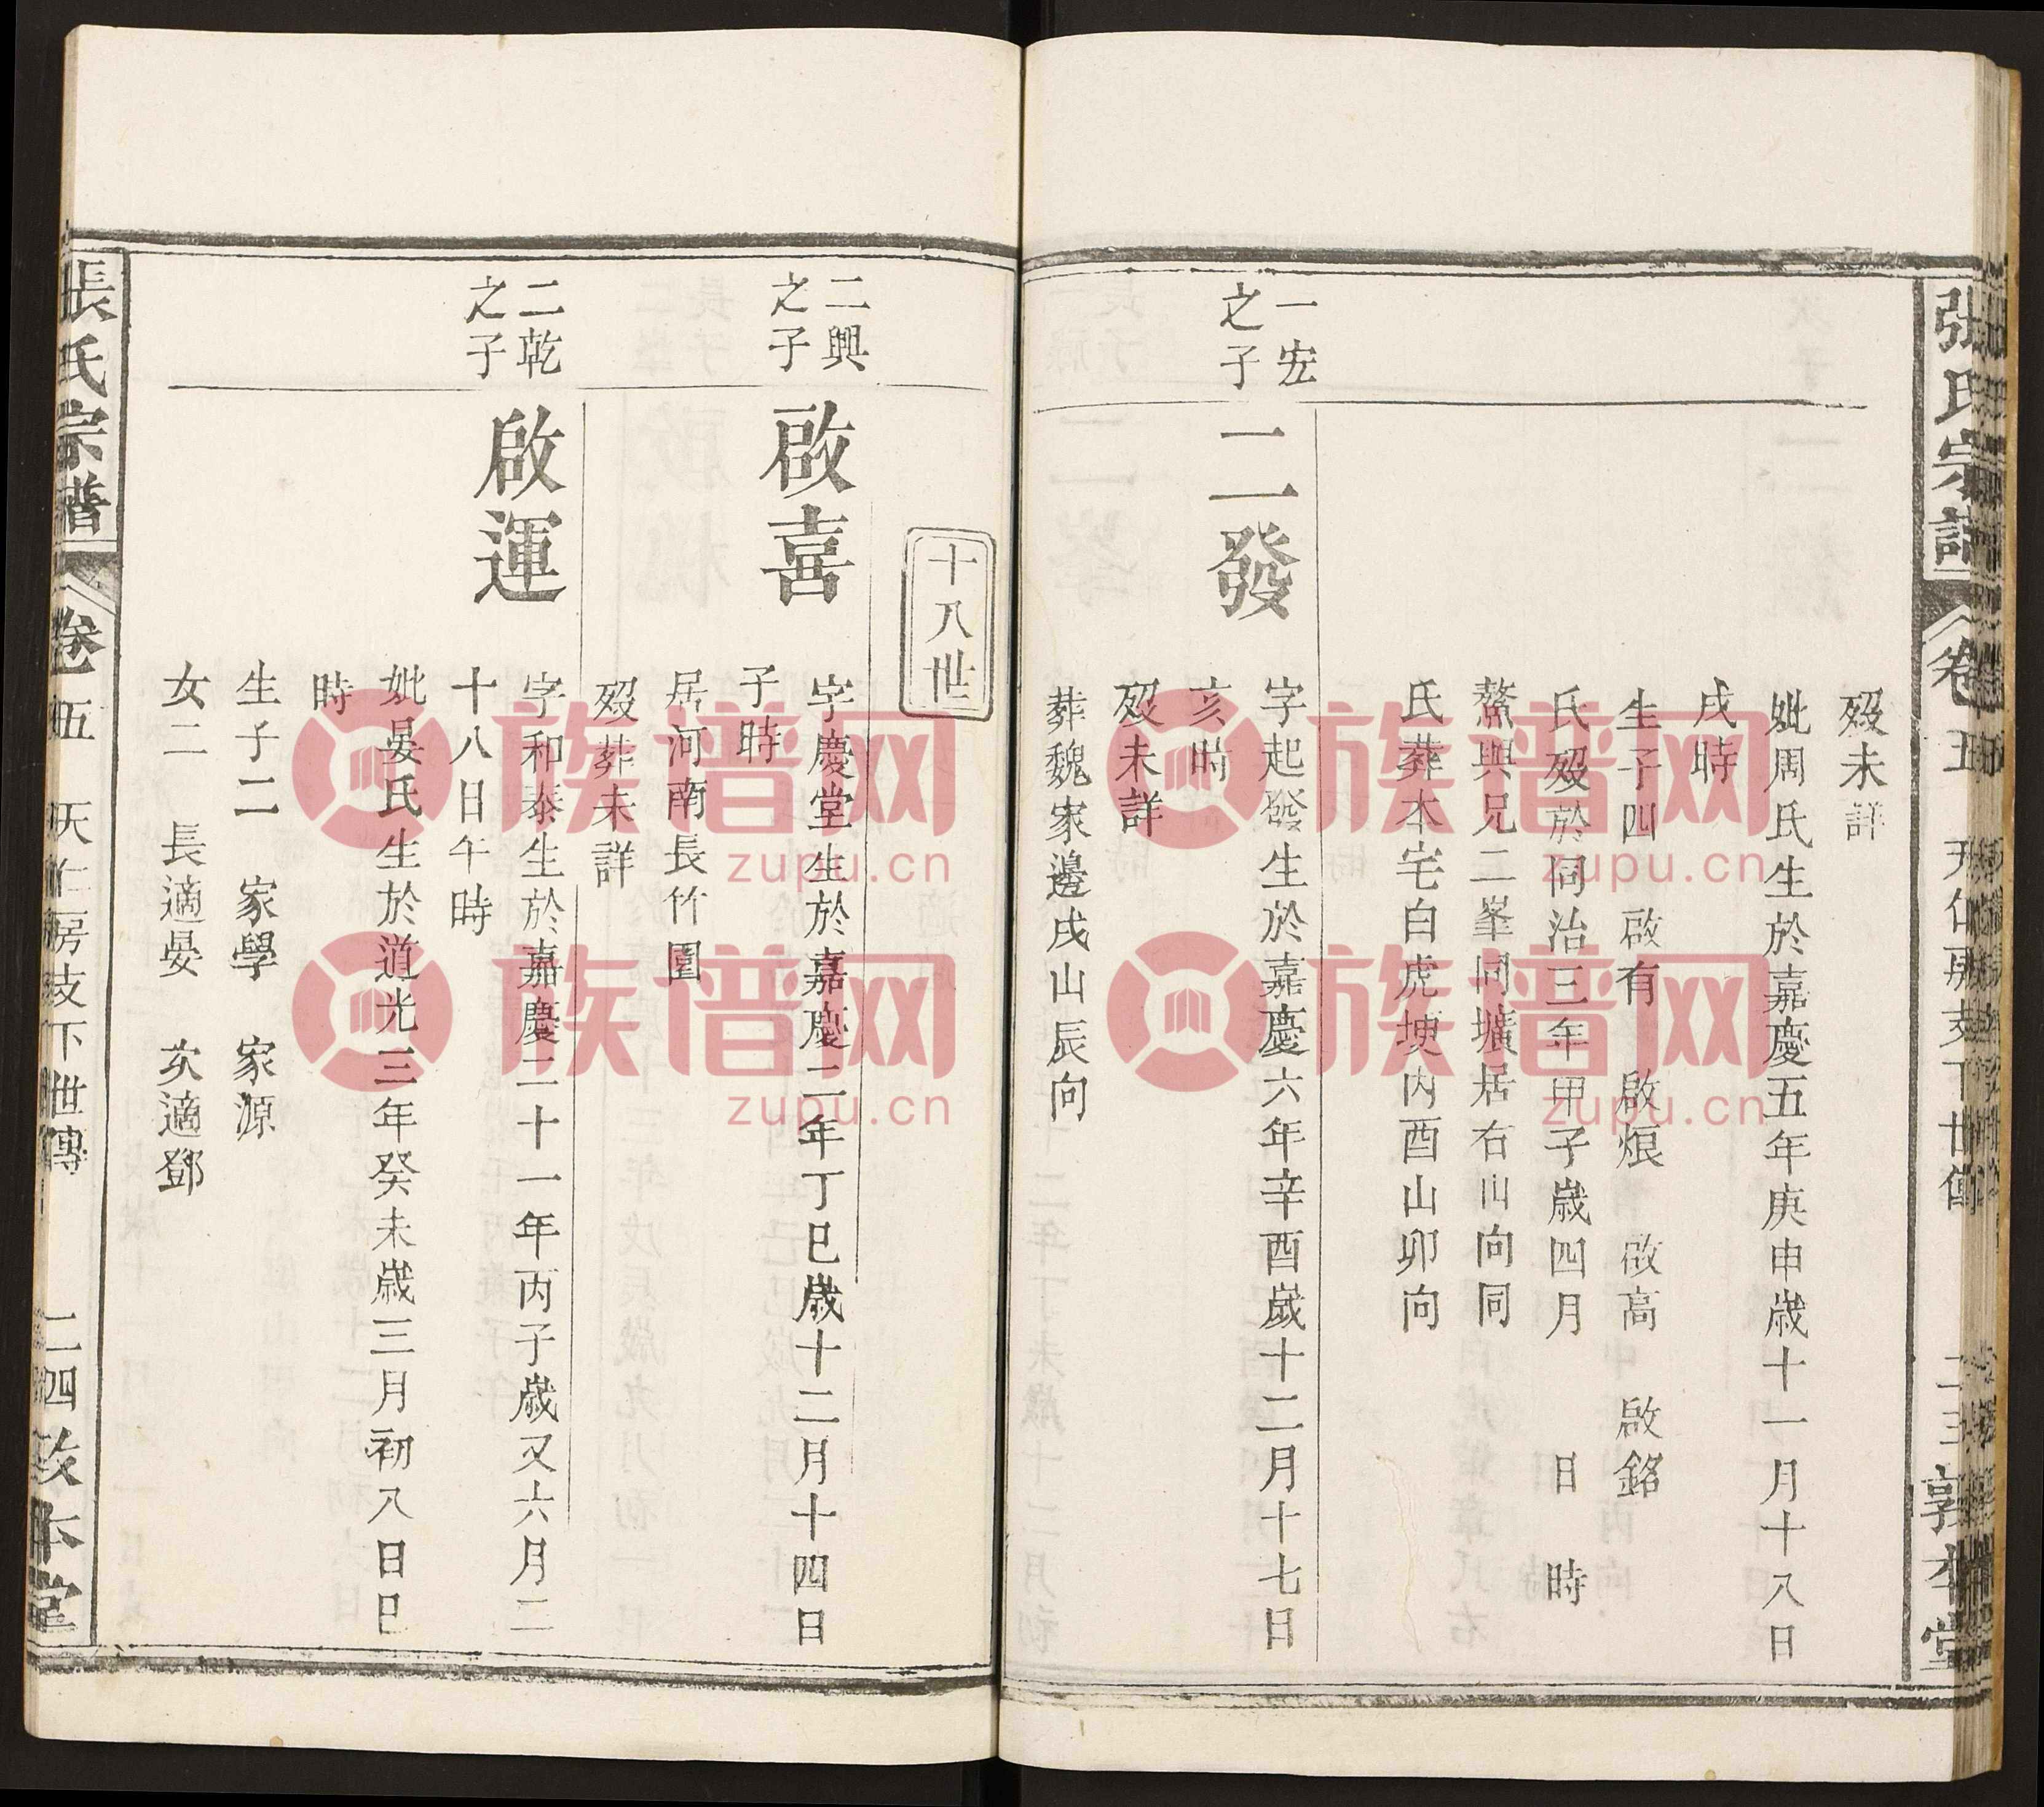 張氏宗譜 卷五 天仁房支下世傳 二三 敦本堂
歿未詳
妣周氏生於嘉慶五年庚申歲十一月十八日
戌時
生子四 啟有 啟烺 啟高 啟銘
氏歿於同治三年甲子歲四月 日 時
鰲與兄二峯同壙居右山向同
氏葬本宅白虎堘内酉山卯向
一宏
之子
二發
字起發生於嘉慶六年辛酉歲十二月十七日
亥時
歿未詳
葬魏家邊戌山辰向
十八世
二興
之子
啟喜
字慶堂生於嘉慶二年丁巳歲十二月十四日
子時
居河南長竹園
歿葬未詳
二乾
之子
啟運
字和泰生於嘉慶二十一年丙子歲又六月二
十八日午時
妣晏氏生於道光三年癸未歲三月初八日巳
時
生子二 家學 家源
女二 長適晏 次適鄧
張氏宗譜 卷五 天仁房支下世傳 二四 敦本堂
族谱网
zupu.cn
族谱网
zupu.cn
族谱网
zupu.cn
族谱网
zupu.cn